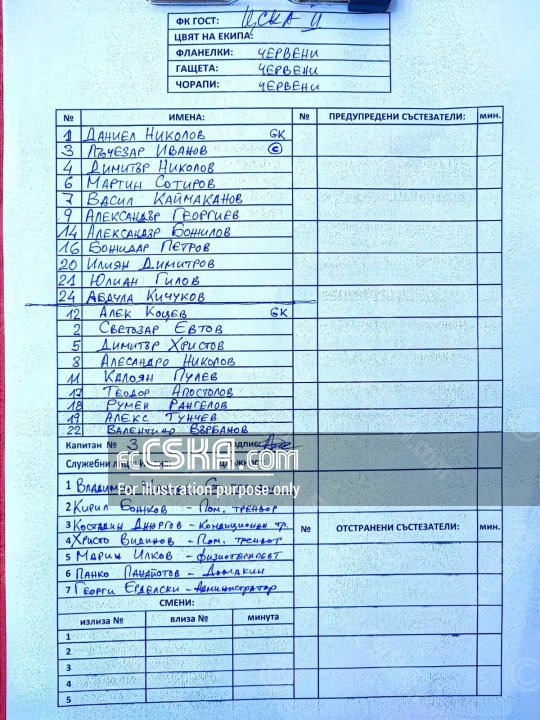 ФК ГОСТ: ЦСКА II
ЦВЯТ НА ЕКИПА:
ФЛАНЕЛКИ: ЧЕРВЕНИ
ГАЩЕТА: ЧЕРВЕНИ
ЧОРАПИ: ЧЕРВЕНИ
№ ИМЕНА: № ПРЕДУПРЕДЕНИ СЪСТЕЗАТЕЛИ: мин.
1 ДАНИЕЛ НИКОЛОВ GK
3 ЛЪЧЕЗАР ИВАНОВ C
4 ДИМИТЪР НИКОЛОВ
6 МАРТИН СОТИРОВ
7 ВАСИЛ КАЙМАКАНОВ
9 АЛЕКСАНДЪР ГЕОРГИЕВ
14 АЛЕКСАНДЪР БОЖИЛОВ
16 БОЖИДАР ПЕТРОВ
20 ИЛИЯН ДИМИТРОВ
21 ЮЛИАН ГИЛОВ
24 АБДУЛА КИЧУКОВ
12 АЛЕК КОЦЕВ GK
2 СВЕТОЗАР ЕВТОВ
5 ДИМИТЪР ХРИСТОВ
8 АЛЕСАНДРО НИКОЛОВ
11 КАЛОЯН ПУЛЕВ
17 ТЕОДОР АПОСТОЛОВ
18 РУМЕН РАНГЕЛОВ
19 АЛЕКС ТУНЧЕВ
22 ВАЛЕНТИНО ВЪРБАНОВ
Капитан № 3
fcCSKA.com
Служебни лица
For illustration purpose only
1
2 КИРИЛ БОЖКОВ - ПОМ. ТРЕНЬОР
3 КОСТАДИН - КОНДИЦИОНЕН ТР. № ОТСТРАНЕНИ СЪСТЕЗАТЕЛИ: мин.
4 ХРИСТО ВИДИНОВ - ПОМ. ТРЕНЬОР
5 МАРИЯН ИЛКОВ - ФИЗИОТЕРАПЕВТ
6 ПАНКО ПАНАЙОТОВ - ДОМАКИН
7 ГЕОРГИ ЕРДЕЛСКИ - АДМИНИСТРАТОР
СМЕНИ:
излиза № влиза № минута
1
2
3
4
5